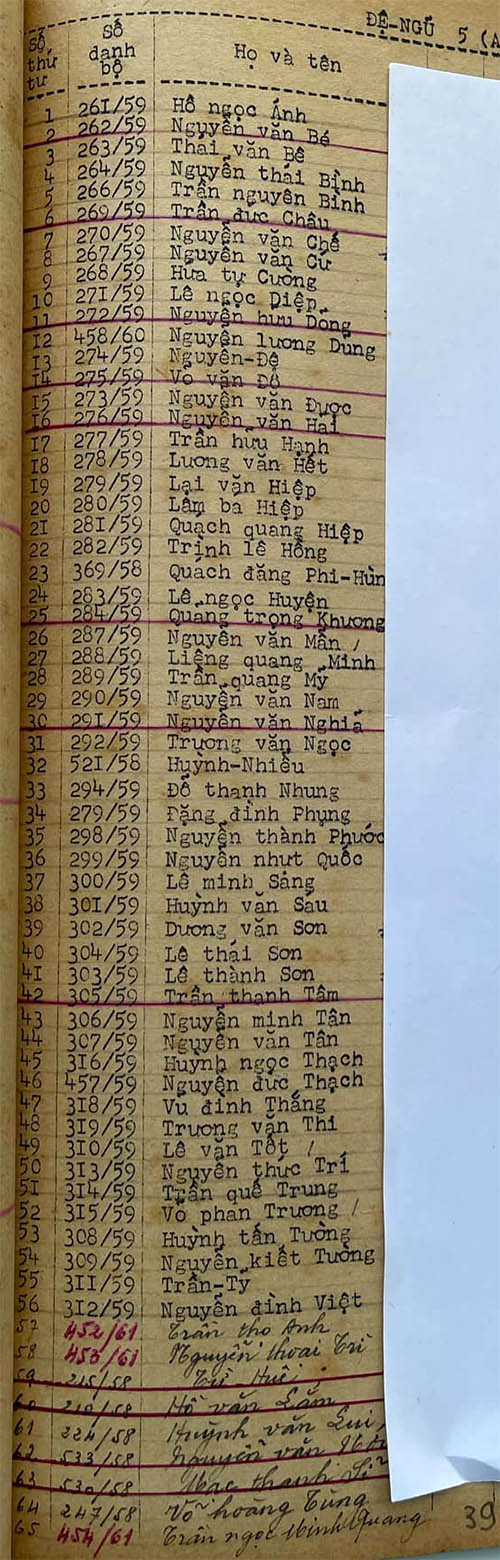 ĐỆ-NGŨ 5 (A
Số thứ tự Số danh bộ Họ và tên
1 261/59 Hồ ngọc Ánh
2 262/59 Nguyễn văn Bé
3 263/59 Thái văn Bê
4 264/59 Nguyễn thái Bình
5 266/59 Trần nguyên Bình
6 269/59 Trần đức Châu
7 270/59 Nguyễn văn Chế
8 267/59 Nguyễn văn Cử
9 268/59 Hứa tự Cường
10 271/59 Lê ngọc Diệp
11 272/59 Nguyễn hữu Dõng
12 458/60 Nguyễn lương Dũng
13 274/59 Nguyễn-Đệ
14 275/59 Võ văn Đô
15 273/59 Nguyễn văn Được
16 276/59 Nguyễn văn Hai
17 277/59 Trần hữu Hạnh
18 278/59 Lương văn Hết
19 279/59 Lại văn Hiệp
20 280/59 Lâm bá Hiệp
21 281/59 Quach quang Hiệp
22 282/59 Trịnh lê Hồng
23 369/58 Quach đăng Phi-Hùn
24 283/59 Lê ngọc Huyện
25 284/59 Quang trọng Khương
26 287/59 Nguyễn văn Mẫn /
27 288/59 Liêng quang Minh
28 289/59 Trần quang Mỹ
29 290/59 Nguyễn văn Nam
30 291/59 Nguyễn văn Nghiã
31 292/59 Trương văn Ngọc
32 521/58 Huỳnh-Nhiều
33 294/59 Đỗ thanh Nhung
34 279/59 Đặng đình Phụng
35 298/59 Nguyễn thành Phước
36 299/59 Nguyễn nhựt Quốc
37 300/59 Lê minh Sảng
38 301/59 Huỳnh văn Sáu
39 302/59 Dương văn Sơn
40 304/59 Lê thái Sơn
41 303/59 Lê thành Sơn
42 305/59 Trần thanh Tâm
43 306/59 Nguyễn minh Tân
44 307/59 Nguyễn văn Tân
45 316/59 Huỳnh ngọc Thạch
46 457/59 Nguyễn đức Thạch
47 318/59 Vũ đình Thắng
48 319/59 Trương văn Thi
49 310/59 Lê văn Tốt /
50 313/59 Nguyễn thức Trí
51 314/59 Trần quế Trung
52 315/59 Võ phan Trương /
53 308/59 Huỳnh tấn Tường
54 309/59 Nguyễn kiết Tường
55 311/59 Trần-Tý
56 312/59 Nguyễn đình Việt
57 452/61 Trần thọ Anh
58 453/61 Nguyễn thoại Trí
59 215/58 Huê
60 210/58 Hồ văn Lắm
61 224/58 Huỳnh văn Lui
62 533/58 Nguyễn văn
63 530/58 Mạc thanh
64 247/58 Võ hoàng Tùng
65 454/61 Trần ngọc Minh Quang
39